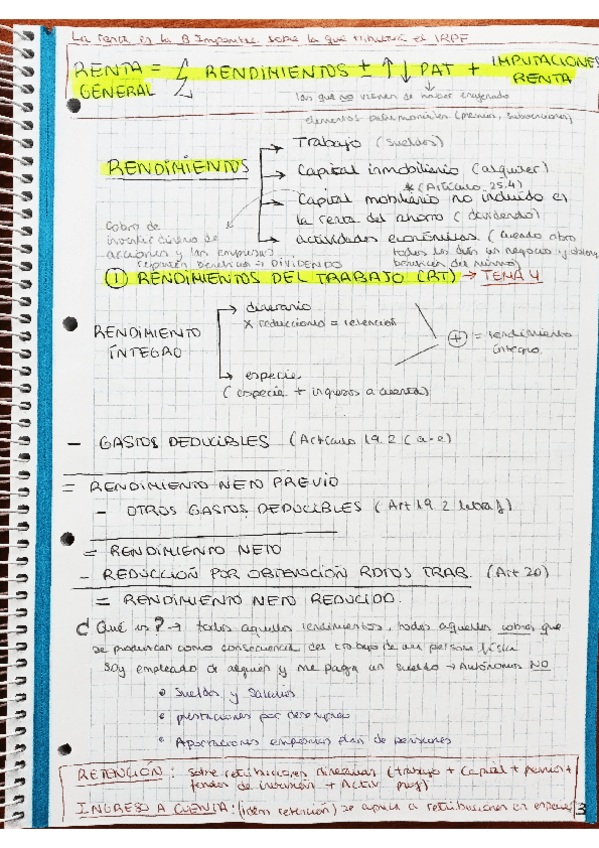 La renta es la B Imponible sobre la que tributará el IRPF
RENTA GENERAL = Σ RENDIMIENTOS ± ↑↓ PAT + IMPUTACIONES RENTA
las que no vienen de haber enajenado
elementos patrimoniales (premios, subvenciones)
RENDIMIENTOS
Trabajo (sueldos)
Capital inmobiliario (alquiler)
* (Artículo 25.4)
Capital mobiliario no incluido en
la renta del ahorro (dividendo)
actividades económicas. (cuando abro
todos los días un negocio y obtengo
beneficios del mismo)
Cobro de
invertir dinero de
acciones y las empresas
reparten beneficios → DIVIDENDO
① RENDIMIENTOS DEL TRABAJO (RT) → TEMA 4
RENDIMIENTO
ÍNTEGRO
dinerario
x reducciones = retención
especie
(especie + ingresos a cuenta)
+ = rendimiento
íntegro
- GASTOS DEDUCIBLES (Artículo 19.2 (a-e)
= RENDIMIENTO NETO PREVIO
- OTROS GASTOS DEDUCIBLES (Art 19.2 letra f)
= RENDIMIENTO NETO
- REDUCCIÓN POR OBTENCIÓN RDTOS TRAB. (Art 20)
= RENDIMIENTO NETO REDUCIDO.
¿Qué es? → todos aquellos rendimientos, todos aquellos cobros que
se produzcan como consecuencia del trabajo de una persona física
Soy empleado de alguien y me paga un sueldo → Autónomos NO
• Sueldos y Salarios
• prestaciones por desempleo
• Aportaciones empresarios plan de pensiones
RETENCIÓN: sobre retribuciones dinerarias (trabajo + capital + premios +
fondos de inversión + Activ prof)
INGRESO A CUENTA: (ídem retención) se aplica a retribuciones en especie
3